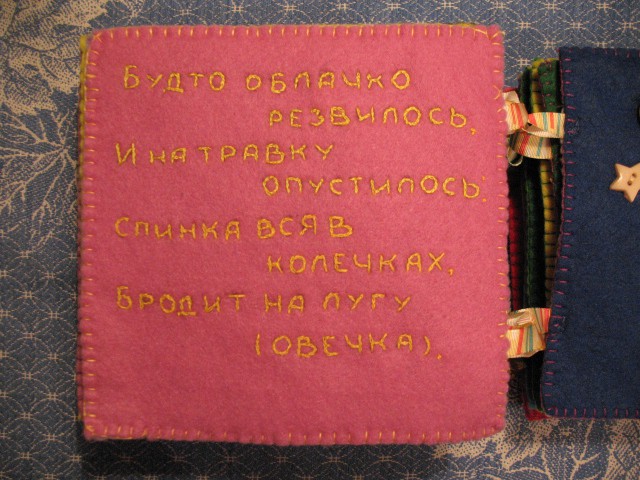 Будто облачко
резвилось,
И на травку
опустилось:
Спинка вся в
колечках,
Бродит на лугу
(овечка).